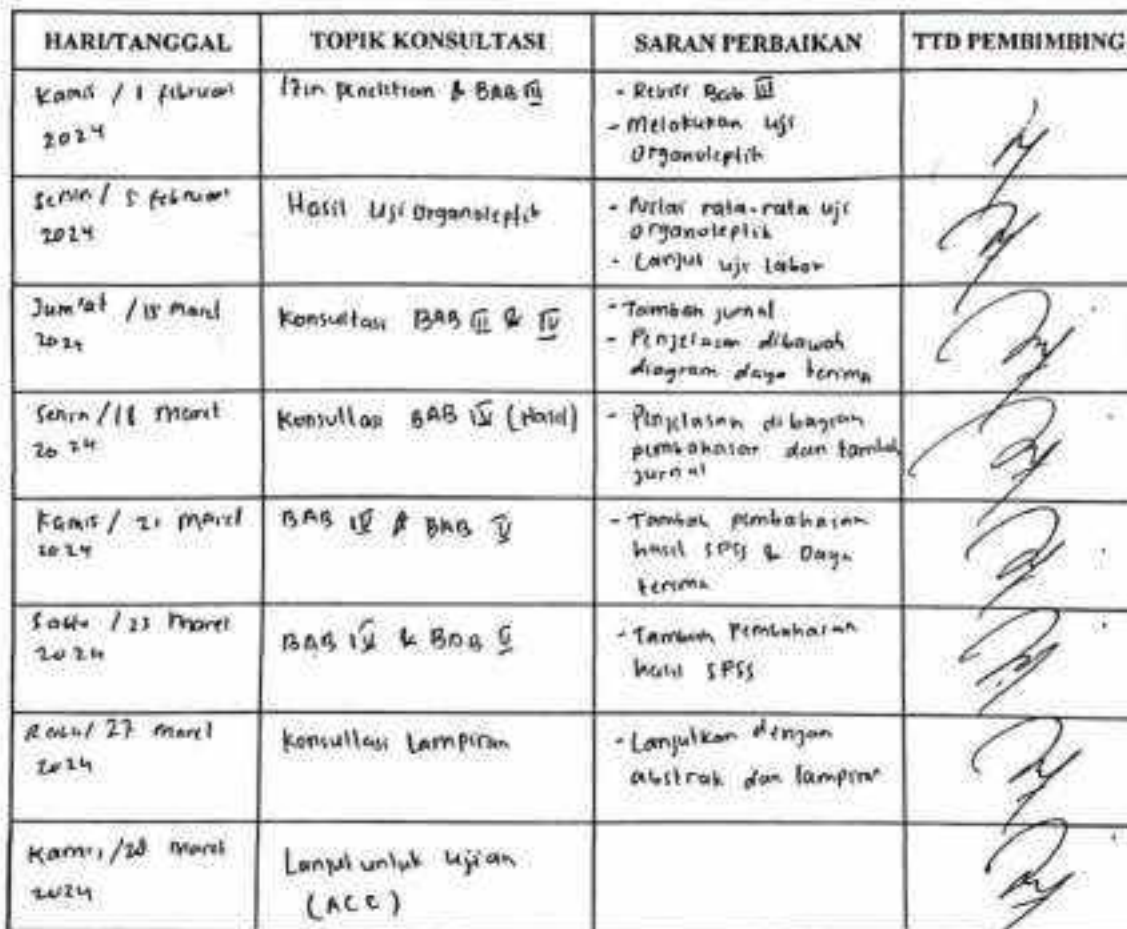 HARI/TANGGAL TOPIK KONSULTASI SARAN PERBAIKAN TTD PEMBIMBING
Kamis / 1 februari
2024
Izin penelitian & BAB III
- Revisi Bab III
- Melakukan uji
organoleptik
Senin / 5 februari
2024
Hasil Uji Organoleptik
- Nilai rata-rata uji
organoleptik
- Lanjut uji labor
Jum'at / 15 Maret
2024
Konsultasi BAB III & IV
- Tambah jurnal
- Penjelasan dibawah
diagram daya terima
Senin / 18 Maret
2024
Konsultasi BAB IV (Hasil)
- Penjelasan dibagian
pembahasan dan tambah
jurnal
Kamis / 21 Maret
2024
BAB IV & BAB V
- Tambah pembahasan
hasil SPSS & Daya
terima
Sabtu / 23 Maret
2024
BAB IV & BAB V
- Tambah Pembahasan
hasil SPSS
Rabu / 27 Maret
2024
Konsultasi Lampiran
- Lanjutkan dengan
abstrak dan lampiran
Kamis / 28 Maret
2024
Lanjut untuk Ujian
(ACC)